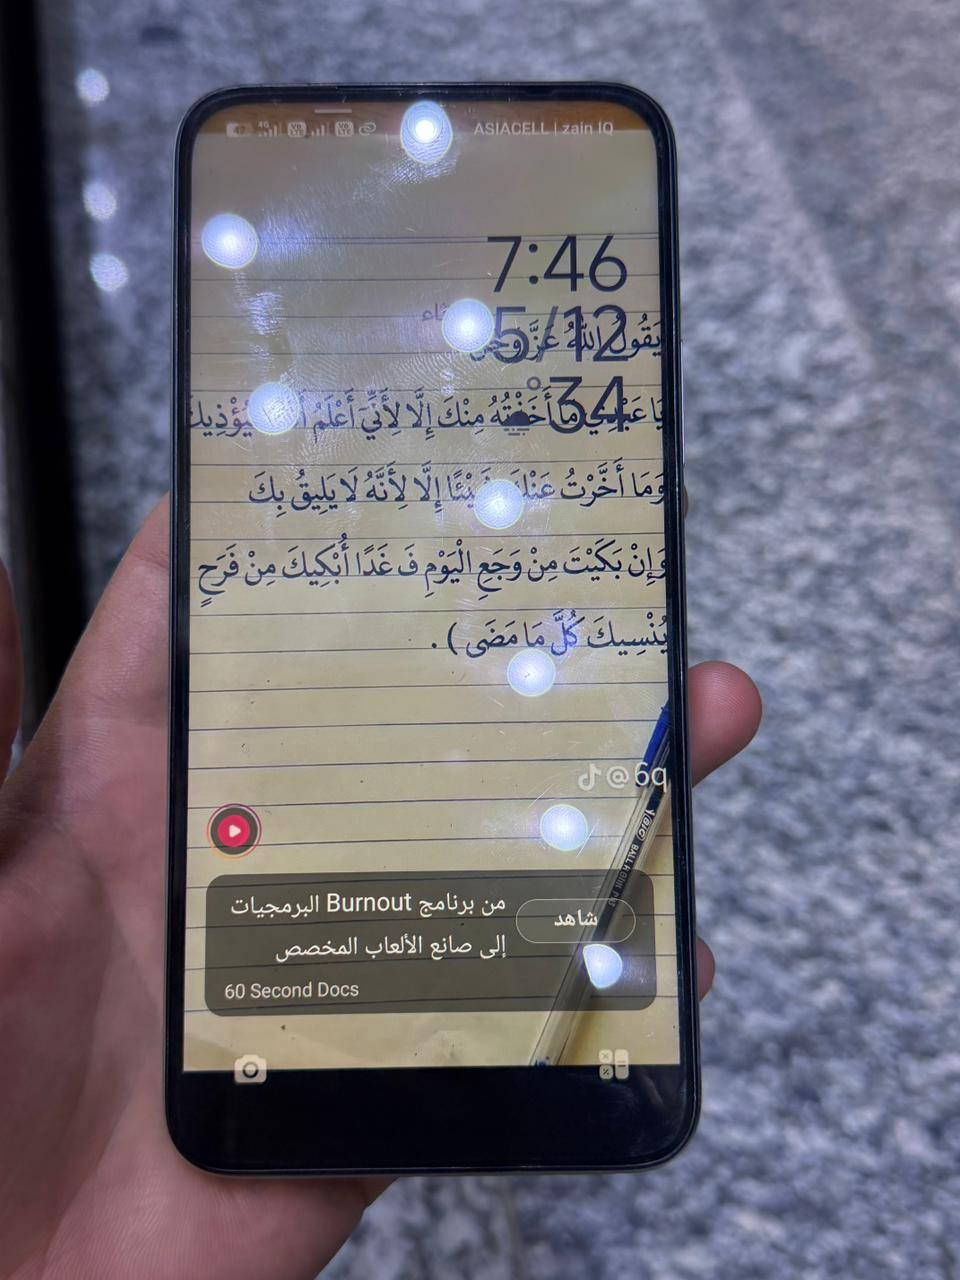 ASIACELL | zain IQ
4G
Vo LTE
Vo LTE
7:46
5/12
34°
يَقُولُ اللهُ عَزَّ وَجَلَّ
مَا أَخَذْتُهُ مِنْكَ إِلَّا لِأَنِّيَ أَعْلَمُ يُؤْذِيكَ
وَمَا أَخَّرْتُ عَنْكَ شَيْئًا إِلَّا لِأَنَّهُ لَا يَلِيقُ بِكَ
وَإِنْ بَكَيْتَ مِنْ وَجَعِ الْيَوْمِ فَ غَدًا أُبْكِيكَ مِنْ فَرَحٍ
يُنْسِيكَ كُلَّ مَا مَضَى ) .
@6q
BIC
من برنامج Burnout البرمجيات
إلى صانع الألعاب المخصص
شاهد
60 Second Docs